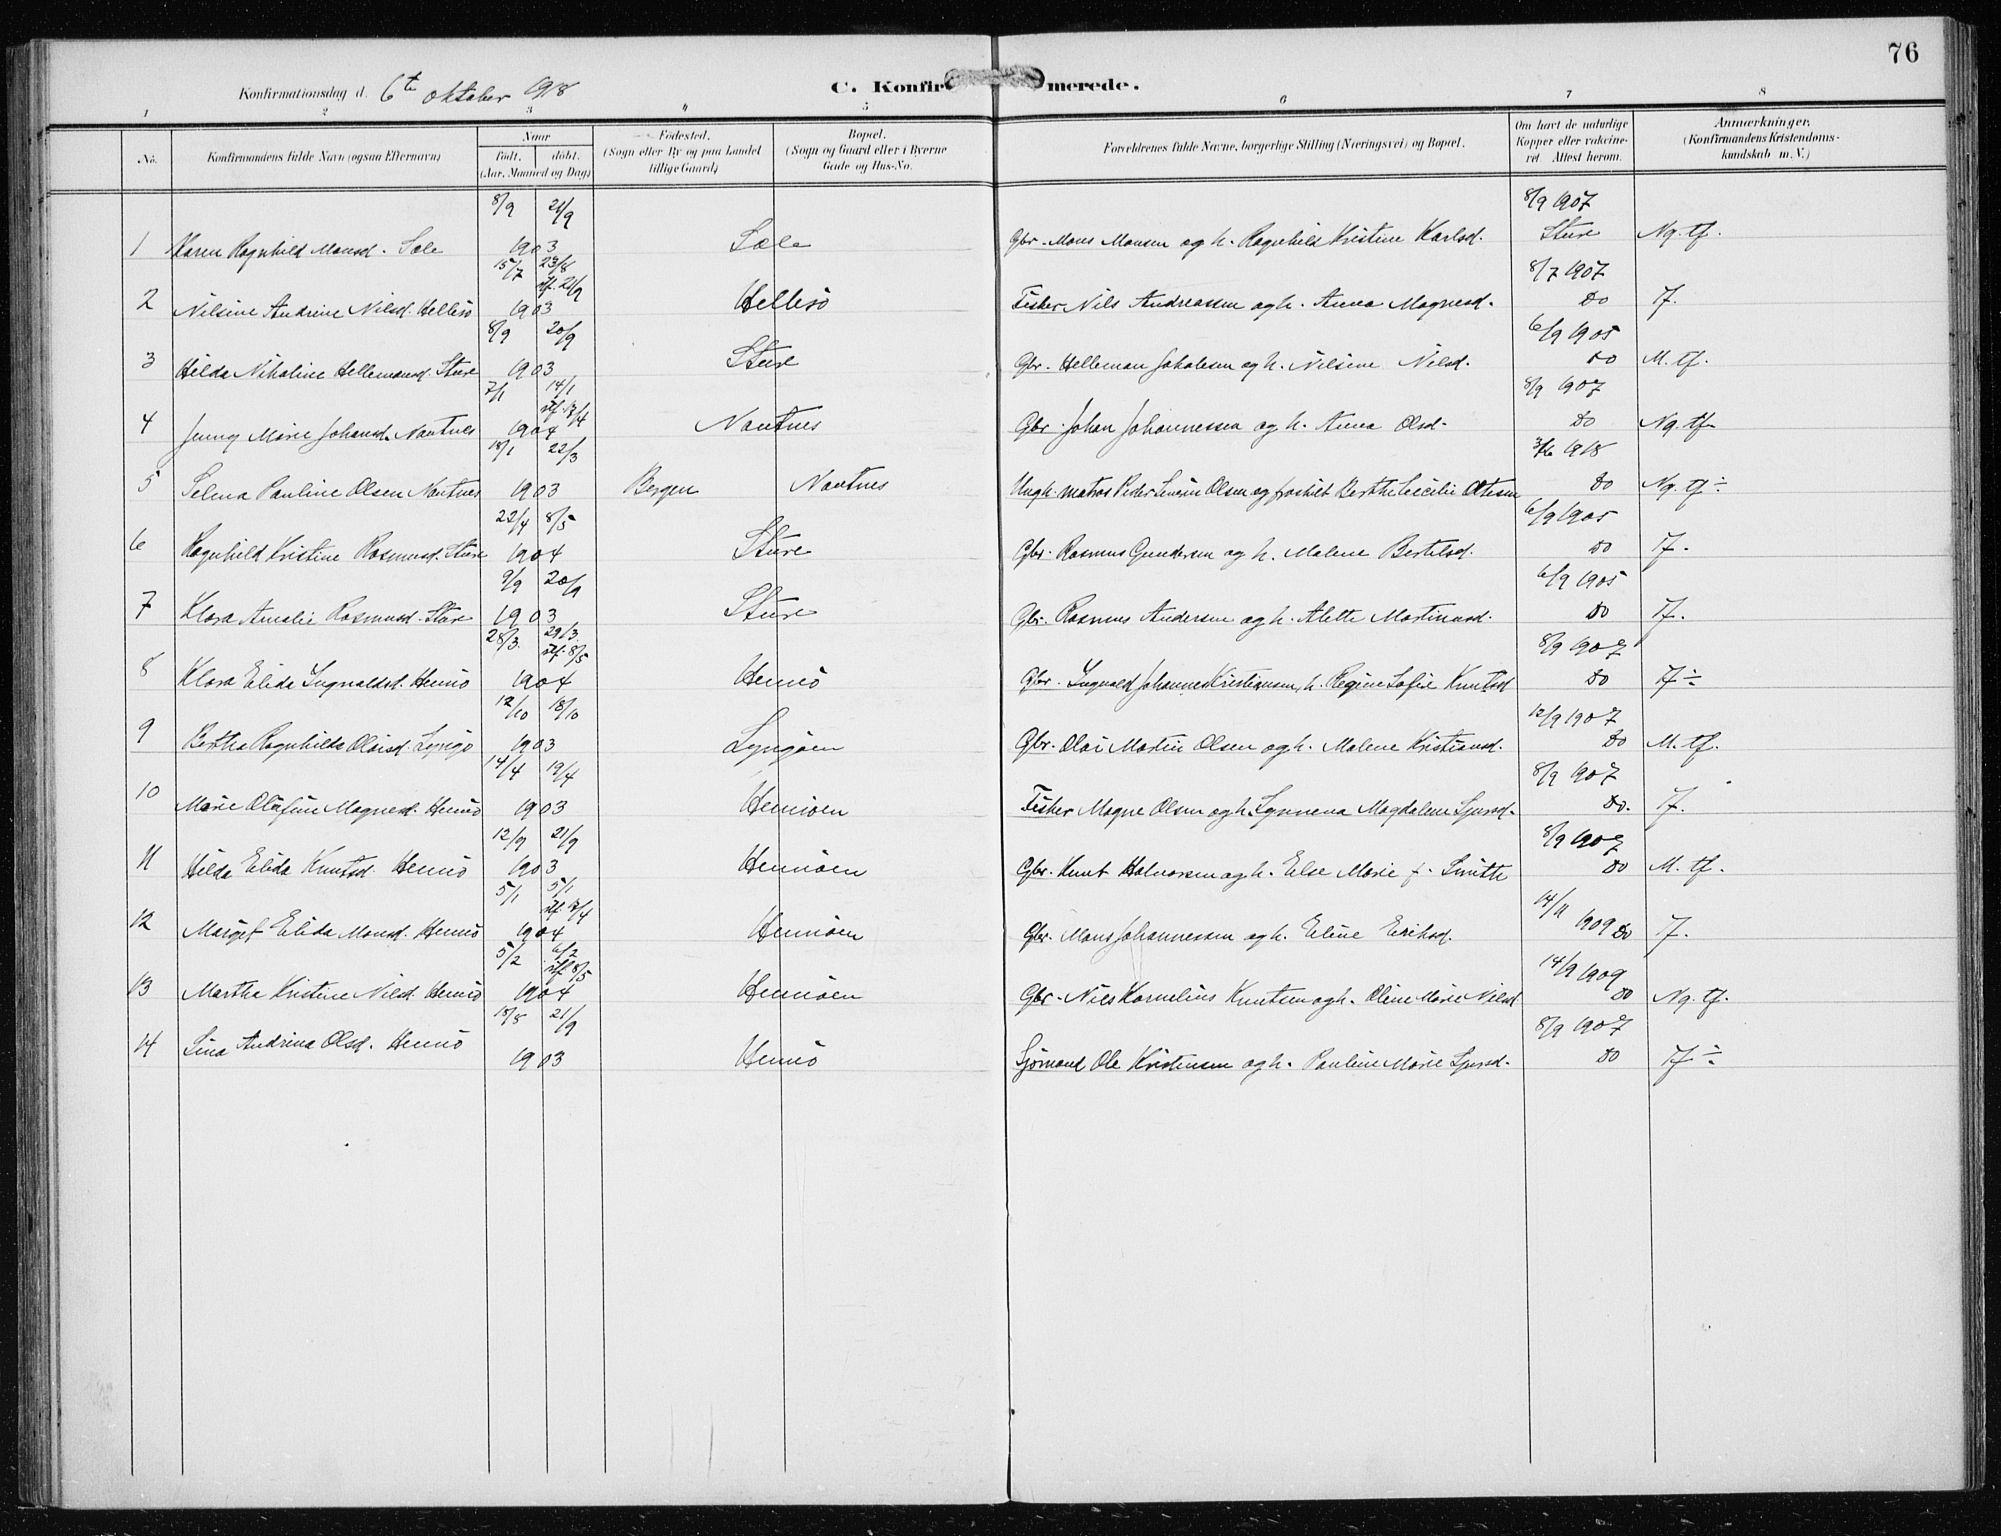 76
Konfirmationsdag d. 6te oktober 1918
C. Konfir merede.
1 2 3 4 5 6 7 8
No. Konfirmandens fulde Navn (ogsaa Efternavn) Naar født, døbt. (Aar, Maaned og Dag) Fødested. (Sogn eller By og paa Landet tillige Gaard) Bopæl. (Sogn og Gaard eller i Byerne Gade og Hus-No. Forældrenes fulde Navne, borgerlige Stilling (Næringsvei) og Bopæl. Om havt de naturlige Kopper eller vaccineret. Attest herom. Anmærkninger. (Konfirmandens Kristendomskundskab m. V.)
8/9 21/9 8/9 1907
1 Karen Ragnhild Monsd. Sæle 1903 Sæle Gbr. Mons Monsen og h. Ragnhild Kristine Karlsd. Sture Ng. tf.
15/7 23/8 stf. 21/9 8/7 1907
2 Nilsine Andrine Nilsd. Hellesö 1903 Hellesö Fisker Nils Andreassen og h. Anna Magnesd. Do T.
8/9 20/9 6/9 1905
3 Hilda Nikoline Hellemansd. Sture 1903 Sture Gbr. Helleman Jakobsen og h. Nilsine Nilsd. Do M. tf.
7/1 14/1 stf. 17/4 8/9 1907
4 Jenny Marie Johansd. Nautnes 1904 Nautnes Gbr. Johan Johannessen og h. Anna Olsd. Do Ng. tf.
18/1 22/3 1918
5 Selma Pauline Olsen Nautnes 1903 Bergen Nautnes Ungk. matros Peder Olsen og Berthe Cecilie Do Ng. tf ÷
22/4 8/5 6/9 1905
6 Ragnhild Kristine Rasmusd. Sture 1904 Sture Gbr. Rasmus Gundersen og h. Malene Bertelsd. Do T.
9/9 20/9 6/9 1905
7 Klara Amalie Rasmusd. Sture 1903 Sture Gbr. Rasmus Andersen og h. Alette Martinusd. Do T.
28/3. 29/3. stf. 8/5 8/9 1907
8 Klara Elida Ingvaldsd. Hernö 1904 Hernö Gbr. Ingvald Johannes Kristiansen, h. Regine Sofie Knutsd Do T ÷
12/10 18/10 12/9 1907
9 Bertha Ragnhilda Olaisd. Lyngö 1903 Lyngöen Gbr. Olai Martin Olsen og h. Malene Kristiansd. Do M. tf.
14/4 19/4 8/9 1907
10 Marie Olufine Magnesd. Hernö 1903 Hernöen Fisker Magne Olsen og h. Magdalene Sjursd. Do. T.
12/9 21/9 8/9 1907
11 Hilda Elida Knutsd. Hernö 1903 Hernöen Gbr. Knut Halvorsen og h. Else Marie f. Smith Do M. tf.
5/1 5/1 stf. 17/4 14/11
12 Marget Elida Monsd. Hernö 1904 Hernöen Gbr. Mons Johannessen og h. Eline Eriksd. 1909 Do T.
5/2 6/2 stf 8/5 14/9 1909
13 Martha Kristine Nilsd. Hernö 1904 Hernöen Gbr. Nils Kornelius Knutsen og h. Oline Marie Nilsd Do Ng. tf.
18/8 21/9 8/9 1907
14 Lina Andrina Olsd. Hernö 1903 Hernö Sjömand Ole Kristensen og h. Pauline Marie Sjursd. Do T ÷